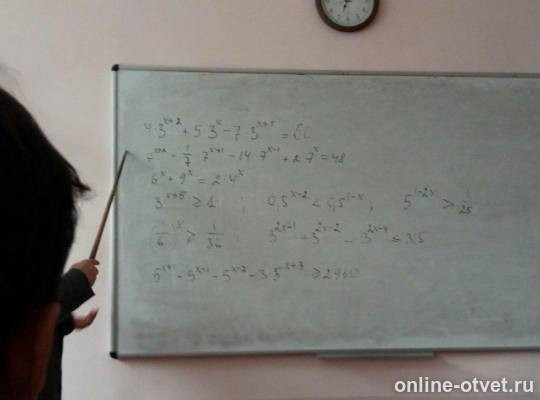 4·3^{x+2} + 5·3^{x} - 7·3^{x+1} = 60
7^{x+2} - \frac{1}{7}·7^{x+1} - 14·7^{x-1} + 2·7^{x} = 48
6^{x} + 9^{x} = 2·4^{x}
3^{x+5} ≥ 1 ; 0,5^{x-2} < 0,5^{1-x} ; 5^{1-2x} > \frac{1}{25}
(\frac{1}{6})^{x} ≥ \frac{1}{36} 3^{2x-1} + 3^{2x-2} - 3^{2x-4} ≤ 315
5^{x+1} - 5^{x-1} - 5^{x-2} - 3·5^{x+3} ≥ 2960
online-otvet.ru